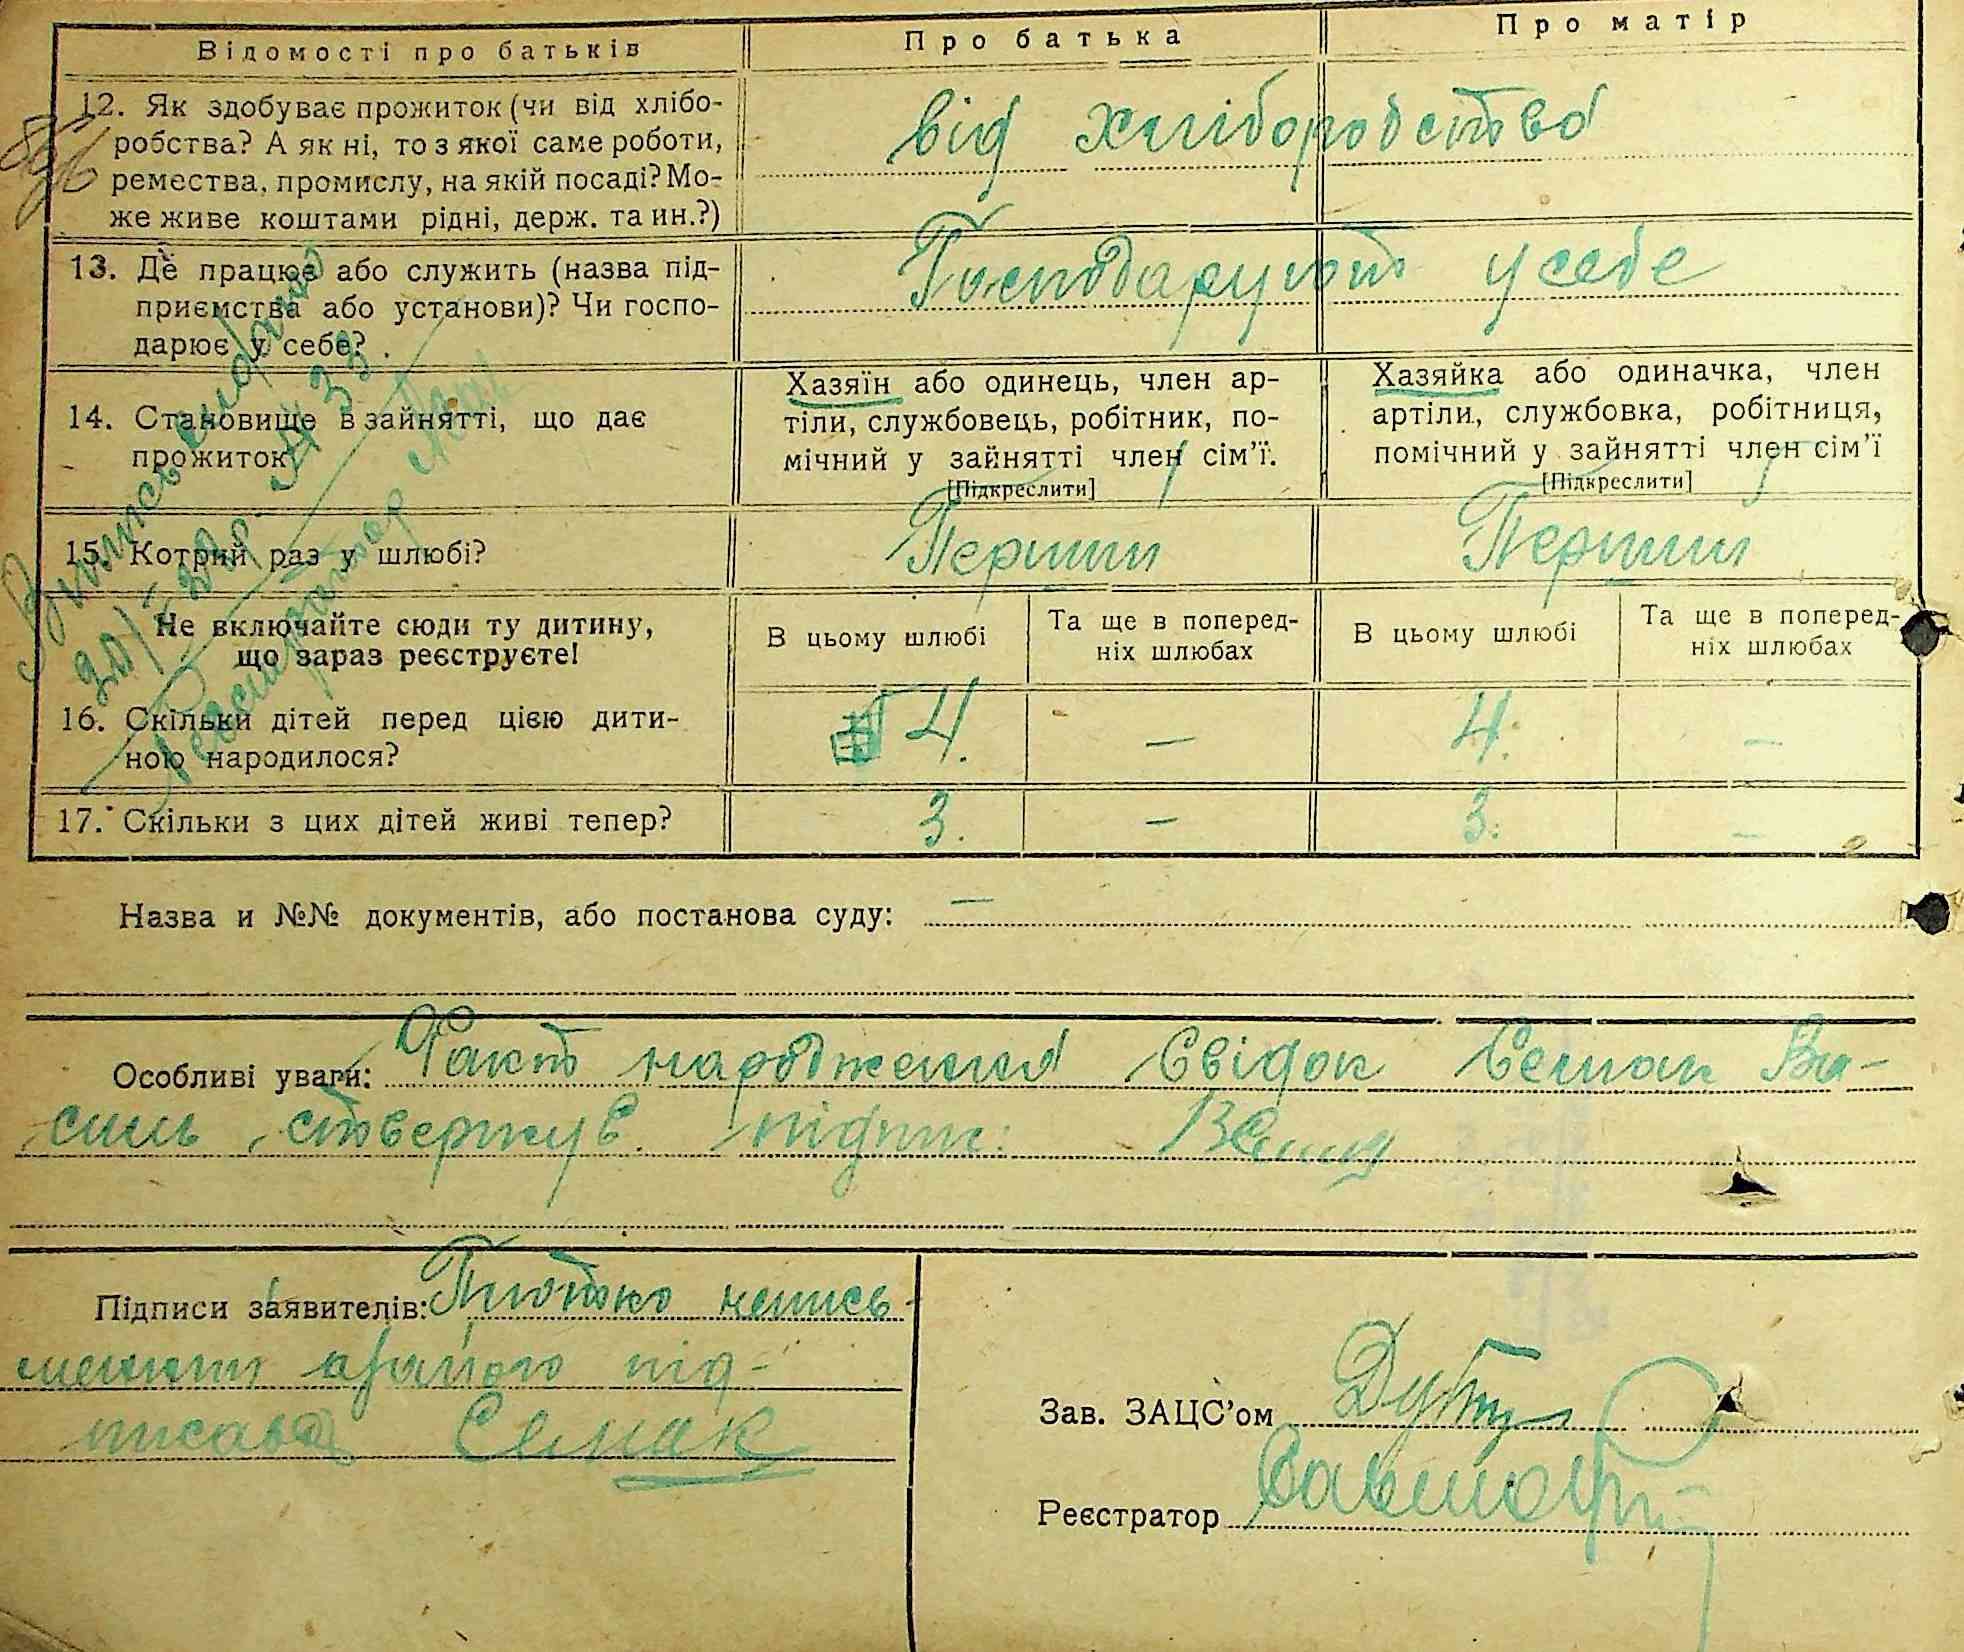 Відомості про батьків Про батька Про матір
12. Як здобуває прожиток (чи від хлібо-
робства? А як ні, то з якої саме роботи,
ремества, промислу, на якій посаді? Мо-
же живе коштами рідні, держ. та ин.?)
від хліборобства
13. Де працює або служить (назва під-
приємства або установи)? Чи госпо-
дарює у себе?
Господарують у себе
14. Становище в зайнятті, що дає
прожиток
Хазяїн або одинець, член ар-
тіли, службовець, робітник, по-
мічний у зайнятті член сім'ї.
[Підкреслити]
Хазяйка або одиначка, член
артіли, службовка, робітниця,
помічний у зайнятті член сім'ї
[Підкреслити]
15. Котрий раз у шлюбі? Перший Перший
Не включайте сюди ту дитину,
що зараз реєструєте!
В цьому шлюбі
Та ще в поперед-
ніх шлюбах
В цьому шлюбі
Та ще в поперед-
ніх шлюбах
16. Скільки дітей перед цією дити-
ною народилося?
4. — 4. —
17. Скільки з цих дітей живі тепер? 3. — 3. —
Випись
Реєстратор
Назва и №№ документів, або постанова суду: —
Особливі уваги: Факт народження Свідок Семак Ва-
силь ствержув. підпис:
Підписи заявителів: непись-
менний а за його під-
писався Семак
Зав. ЗАЦС'ом
Реєстратор